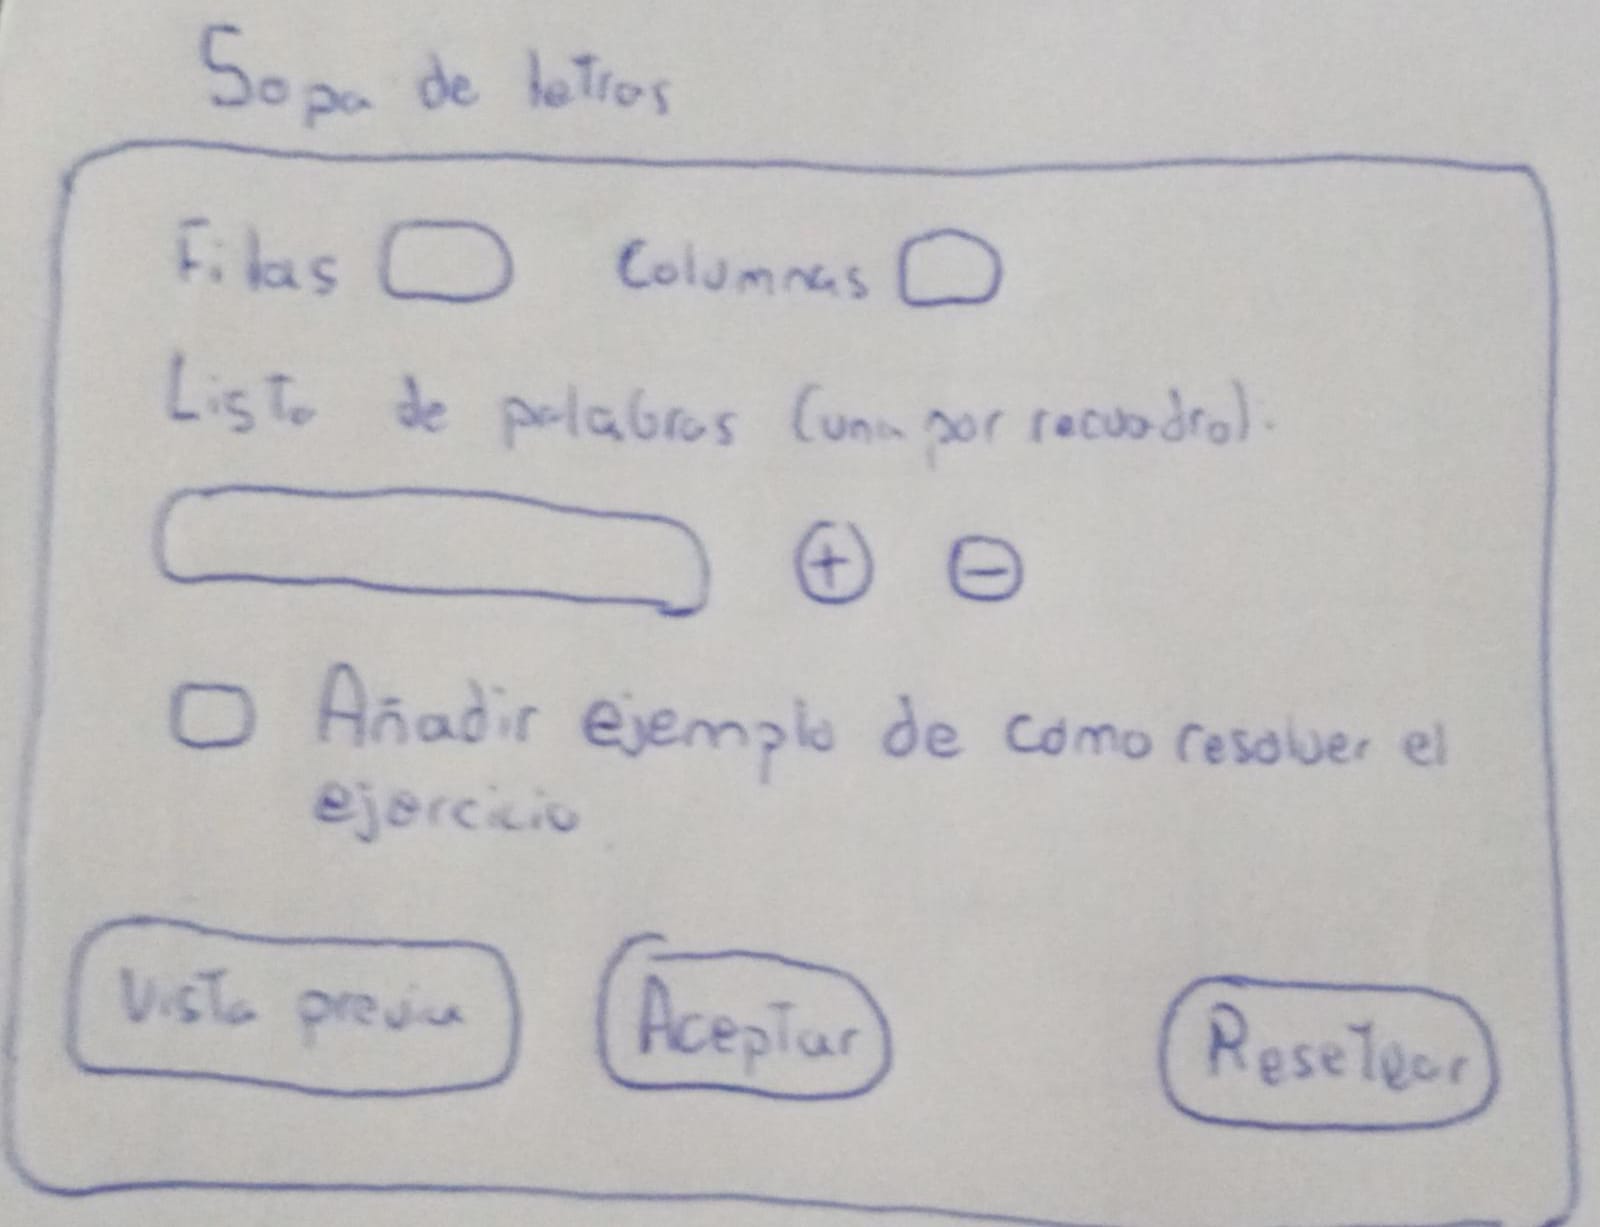 Sopa de letras
Filas Columnas
Lista de palabras (una por recuadro).
+ -
Añadir ejemplo de como resolver el
ejercicio
Vista previa Aceptar Resetear